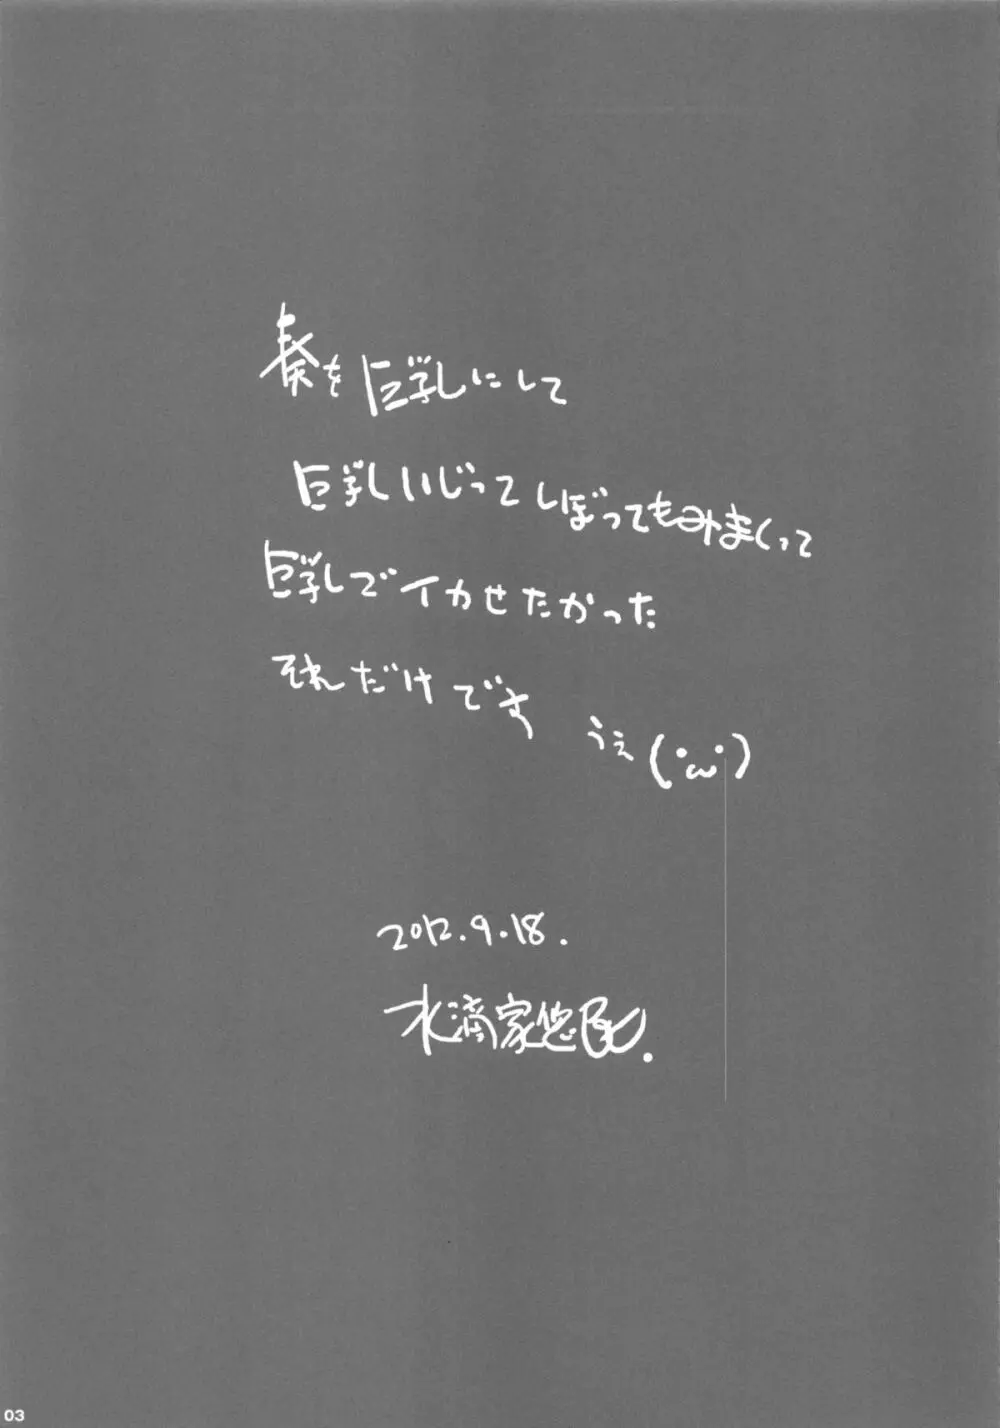 奏を巨乳にして
巨乳いじってしぼってもみまくって
巨乳でイカせたかった
それだけです うぇ(・ω・)
2012.9.18.
水滴家悠尾.
03